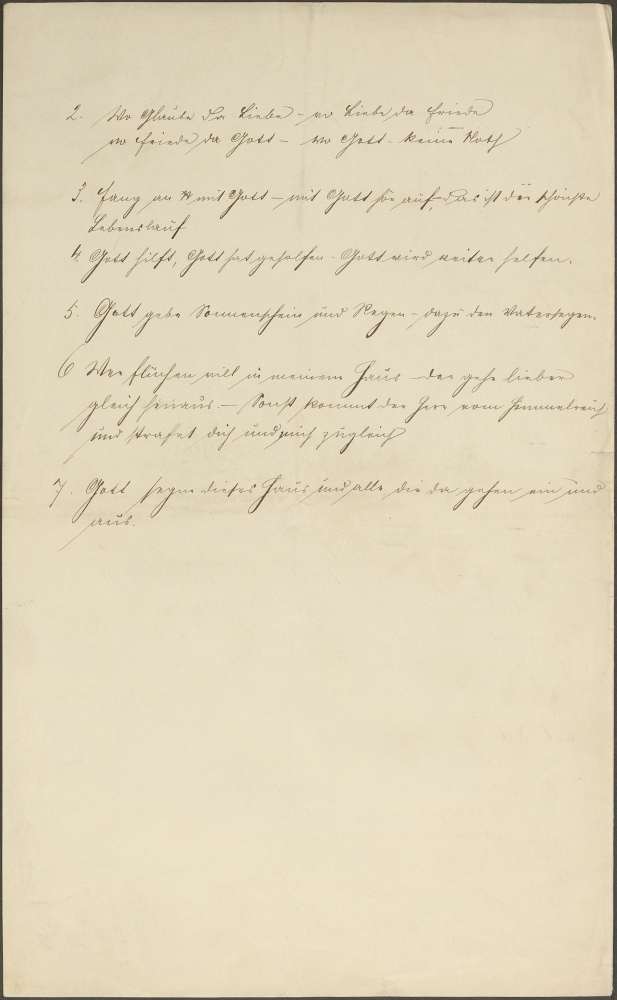 2. Wo Glaube da Liebe – wo Liebe da Friede
wo Friede da Gott – wo Gott – keine Noth
3. Fang an mit Gott – mit Gott hör auf, das ist der schönste
Lebenslauf
4. Gott hilft, Gott hat geholfen – Gott wird weiter helfen.
5. Gott gebe Sonnenschein und Regen – dazu den Vatersegen.
6 Wer fluchen will in meinem Haus – der gehe lieber
gleich hinaus. – Sonst kommt der Herr vom Himmelreich
und strafet dich und mich zugleich
7. Gott segne dieses Haus und alle die da gehen ein und
aus.